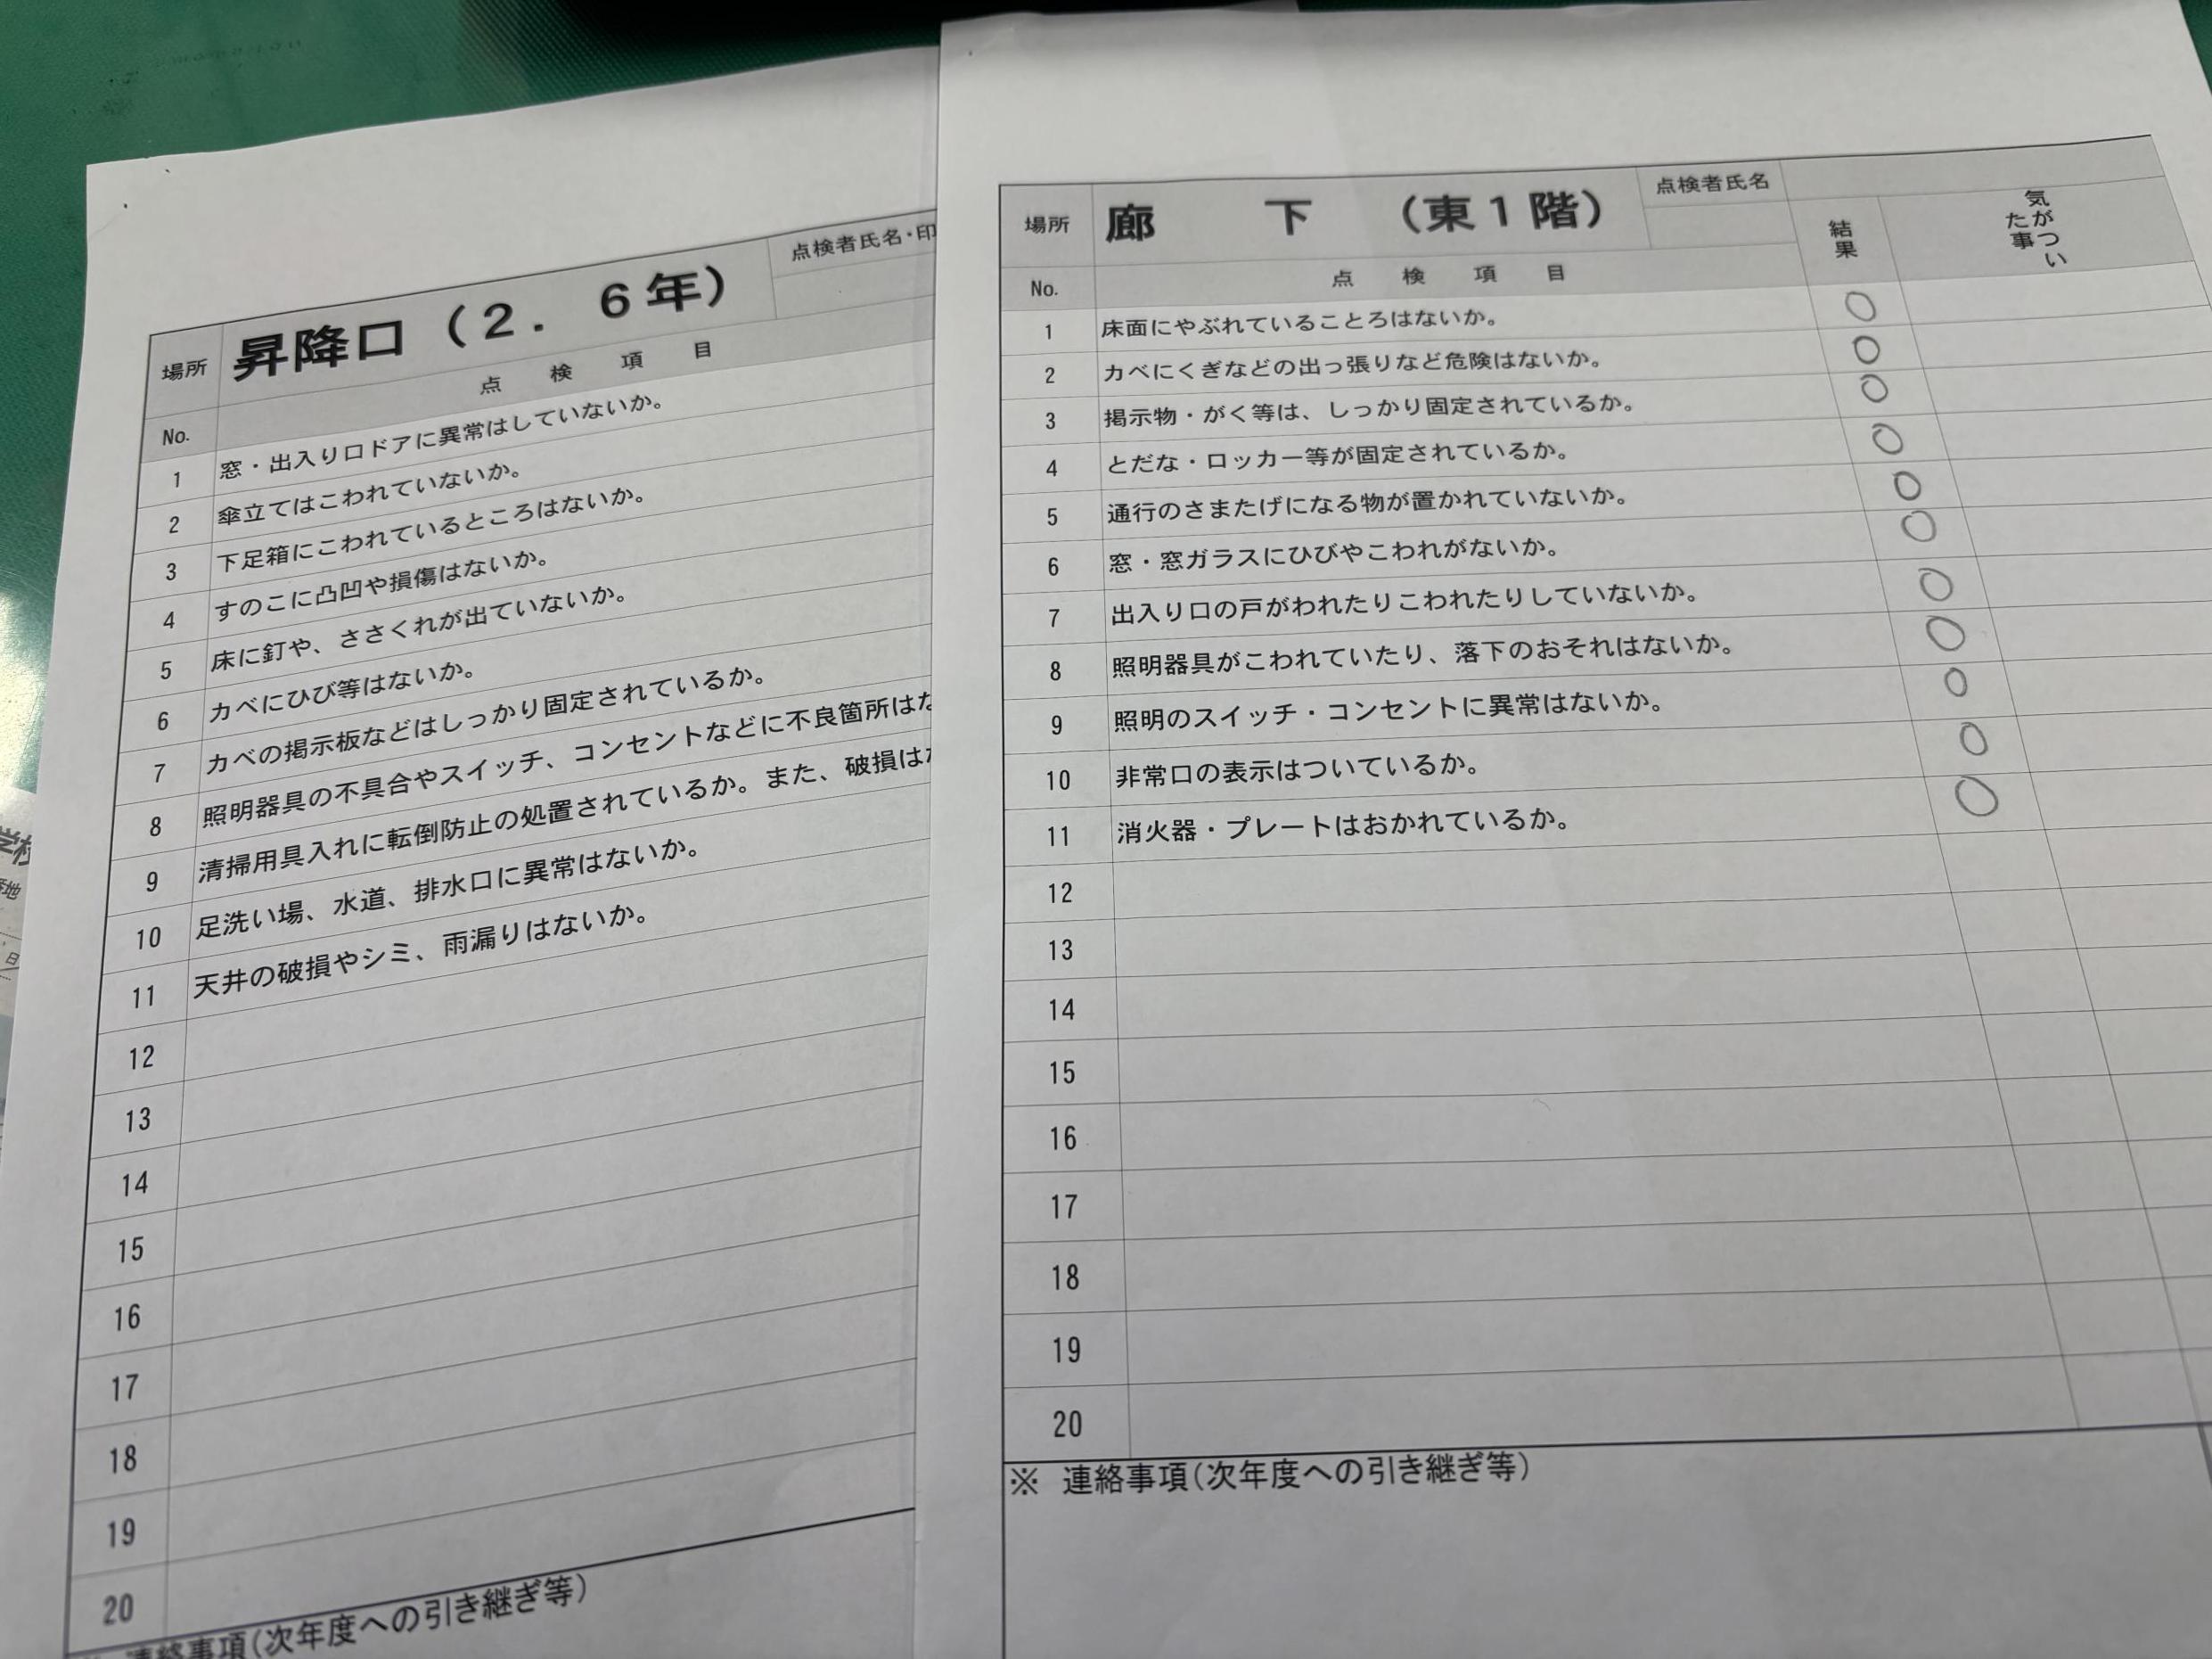 場所 昇降口（２． ６年） 点検者氏名・印
No. 点 検 項 目
1 窓・出入り口ドアに異常はしていないか。
2 傘立てはこわれていないか。
3 下足箱にこわれているところはないか。
4 すのこに凸凹や損傷はないか。
5 床に釘や、ささくれが出ていないか。
6 カベにひび等はないか。
7 カベの掲示板などはしっかり固定されているか。
8 照明器具の不具合やスイッチ、コンセントなどに不良箇所はな
9 清掃用具入れに転倒防止の処置されているか。また、破損は
10 足洗い場、水道、排水口に異常はないか。
11 天井の破損やシミ、雨漏りはないか。
12
13
14
15
16
17
18
19
20
連絡事項(次年度への引き継ぎ等)
場所 廊 下 （東１階） 点検者氏名
No. 点 検 項 目 結果 気がついた事
1 床面にやぶれていることろはないか。 ○
2 カベにくぎなどの出っ張りなど危険はないか。 ○
3 掲示物・がく等は、しっかり固定されているか。 ○
4 とだな・ロッカー等が固定されているか。 ○
5 通行のさまたげになる物が置かれていないか。 ○
6 窓・窓ガラスにひびやこわれがないか。 ○
7 出入り口の戸がわれたりこわれたりしていないか。 ○
8 照明器具がこわれていたり、落下のおそれはないか。 ○
9 照明のスイッチ・コンセントに異常はないか。 ○
10 非常口の表示はついているか。 ○
11 消火器・プレートはおかれているか。 ○
12
13
14
15
16
17
18
19
20
※ 連絡事項(次年度への引き継ぎ等)